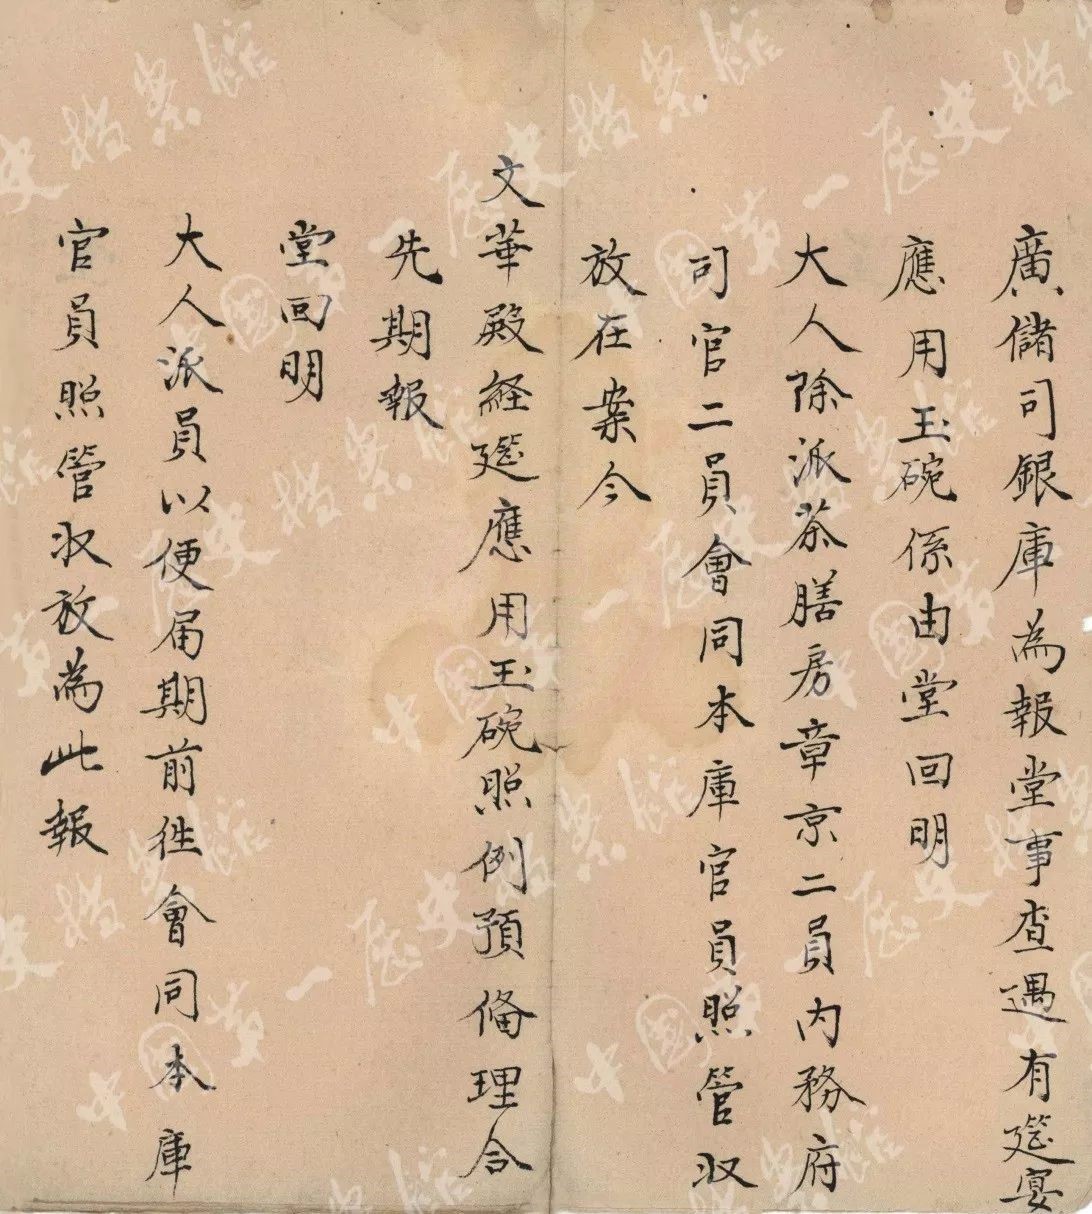 廣儲司銀庫為報堂事查遇有筵宴
應用玉碗係由堂回明
大人除派茶膳房章京二員內務府
司官二員會同本庫官員照管収
放在案今
文華殿経筵應用玉碗照例預俻理合
先期報
堂回明
大人派員以便届期前徃會同本庫
官員照管収放為此報
中國第一歷史檔案館